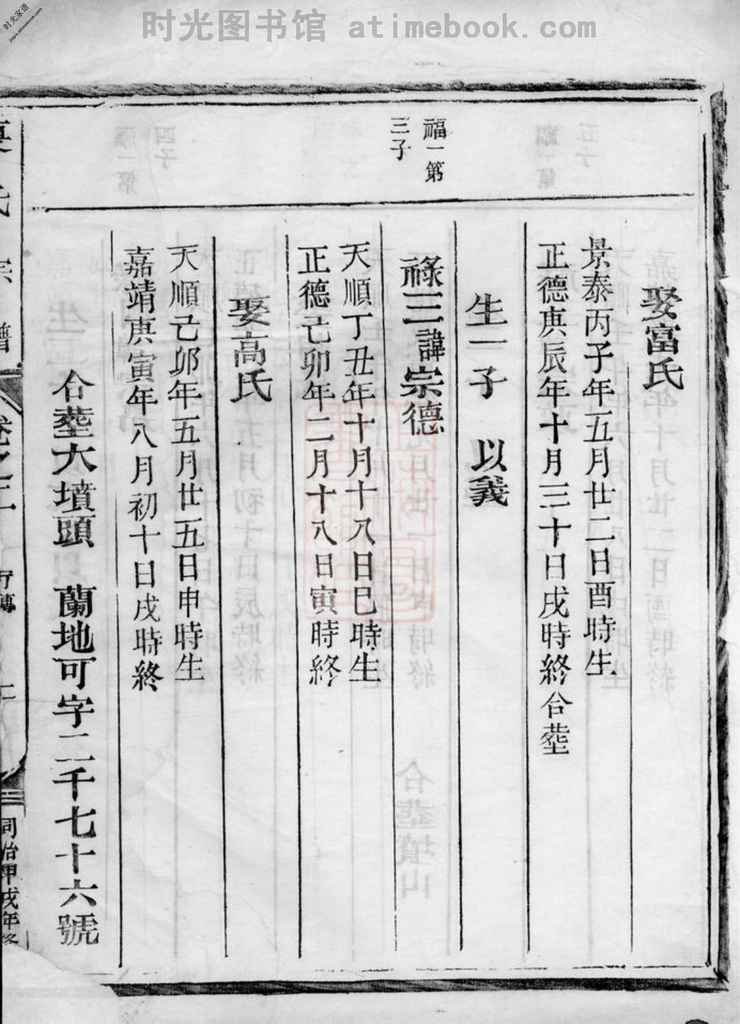 时光图书馆 atimebook.com
时光家谱
娶富氏
景泰丙子年五月廿二日酉時生
正德庚辰年十月三十日戌時終合塟
生一子 以義
福一第
三子
祿三諱宗德
天順丁丑年十月十八日巳時生
正德己卯年二月十八日寅時終
娶高氏
天順己卯年五月廿五日申時生
嘉靖庚寅年八月初十日戌時終
合塟大墳頭 蘭地可字二千七十六號
氏宗譜
卷之二
行傳
同治甲戌年修